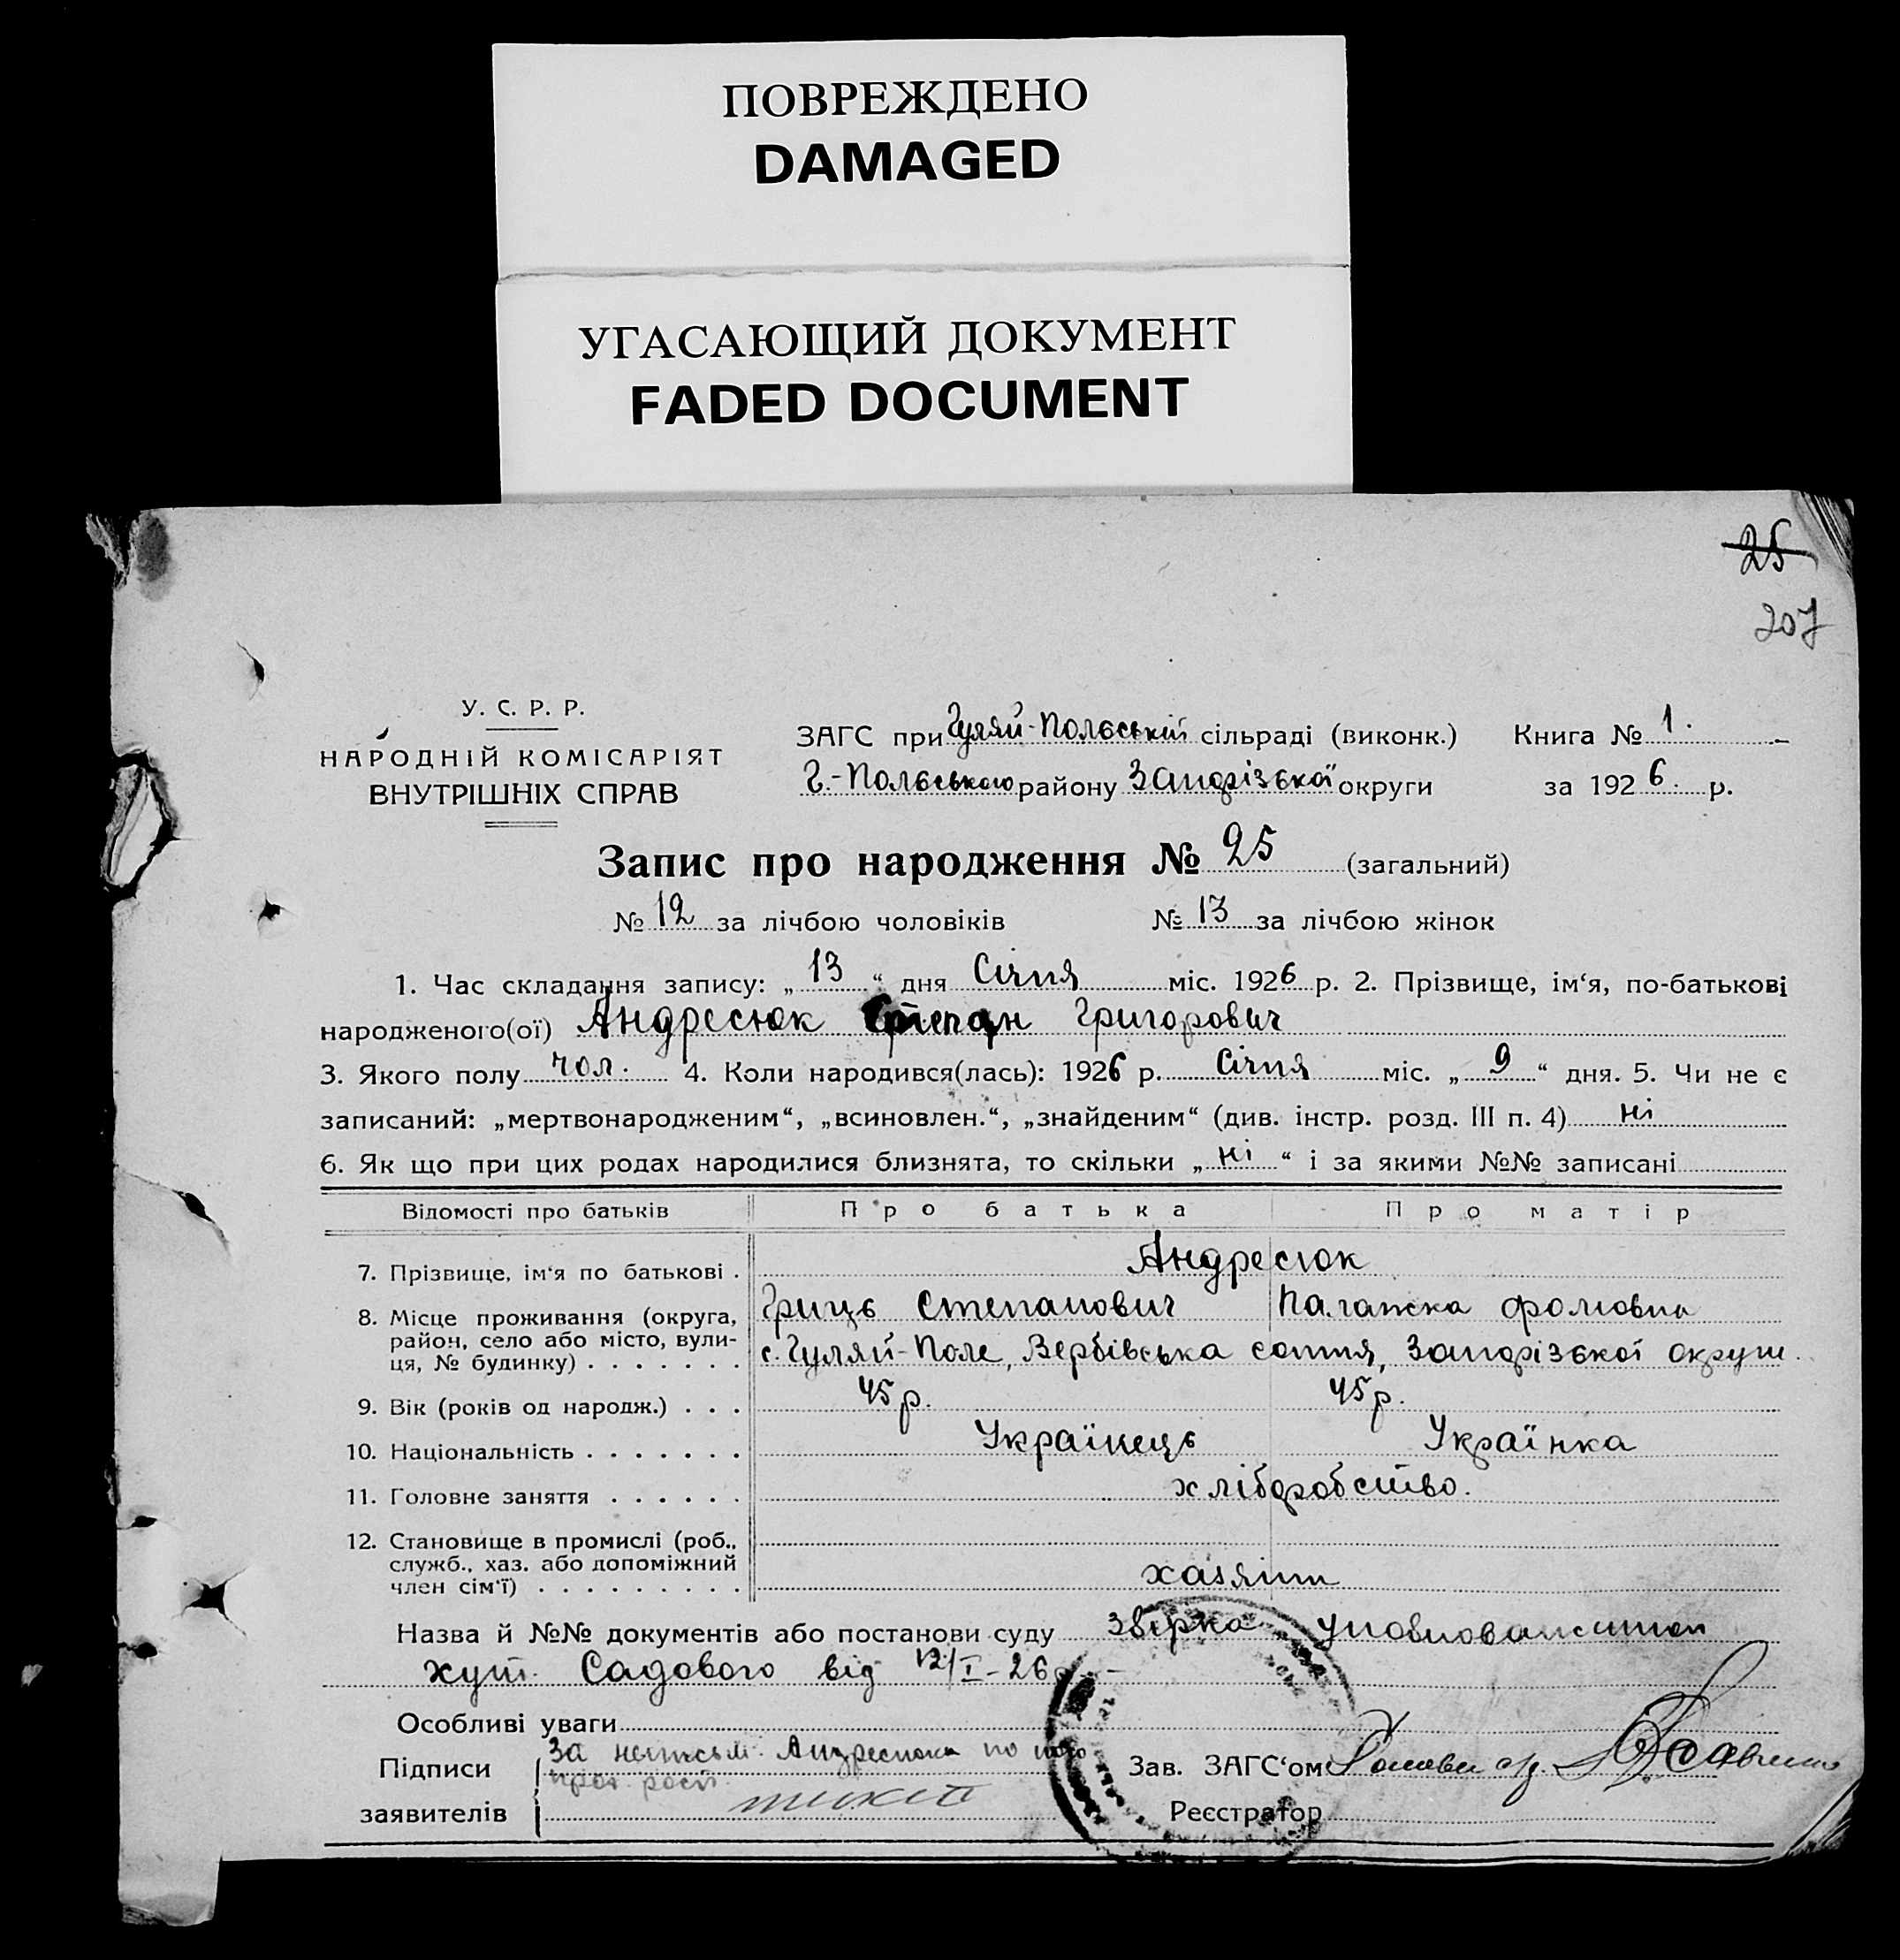 ПОВРЕЖДЕНО
DAMAGED
УГАСАЮЩИЙ ДОКУМЕНТ
FADED DOCUMENT
25
207
У. С. Р. Р.
НАРОДНІЙ КОМІСАРІЯТ
ВНУТРІШНІХ СПРАВ
ЗАГС при Гуляй-Полєській сільраді (виконк.) Книга № 1.
Г.-Полєського району Запорізької округи за 1926. р.
Запис про народження № 25 (загальний)
№ 12 за лічбою чоловіків № 13 за лічбою жінок
1. Час складання запису: „ 13 “ дня Січня міс. 1926 р. 2. Прізвище, ім‘я, по-батькові
народженого(ої) Андресюк Степан Григорович
3. Якого полу чол. 4. Коли народився(лась): 1926 р. Січня міс. „ 9 “ дня. 5. Чи не є
записаний: „мертвонародженим“, „всиновлен.“, „знайденим“ (див. інстр. розд. III п. 4) ні
6. Як що при цих родах народилися близнята, то скільки „ ні “ і за якими №№ записані
Відомості про батьків Про батька Про матір
7. Прізвище, ім‘я по батькові . Андресюк
8. Місце проживання (округа, Гриць Степанович
район, село або місто, вули-
ця, № будинку) . . . . . . . с. Гуляй-Поле, Вербівська сотня, Запорізької округи.
9. Вік (років од народж.) . . . 45 р. 45 р.
10. Національність . . . . . . . Українець Українка
11. Головне заняття . . . . . . хлібробство.
12. Становище в промислі (роб.,
служб., хаз. або допоміжний
член сім‘ї) . . . . . . . . . хазяїн
Назва й №№ документів або постанови суду
хут. Садового від 12/I-26
Особливі уваги
Підписи За Андресюка по
Зав. ЗАГС‘ом
заявителів Реєстратор